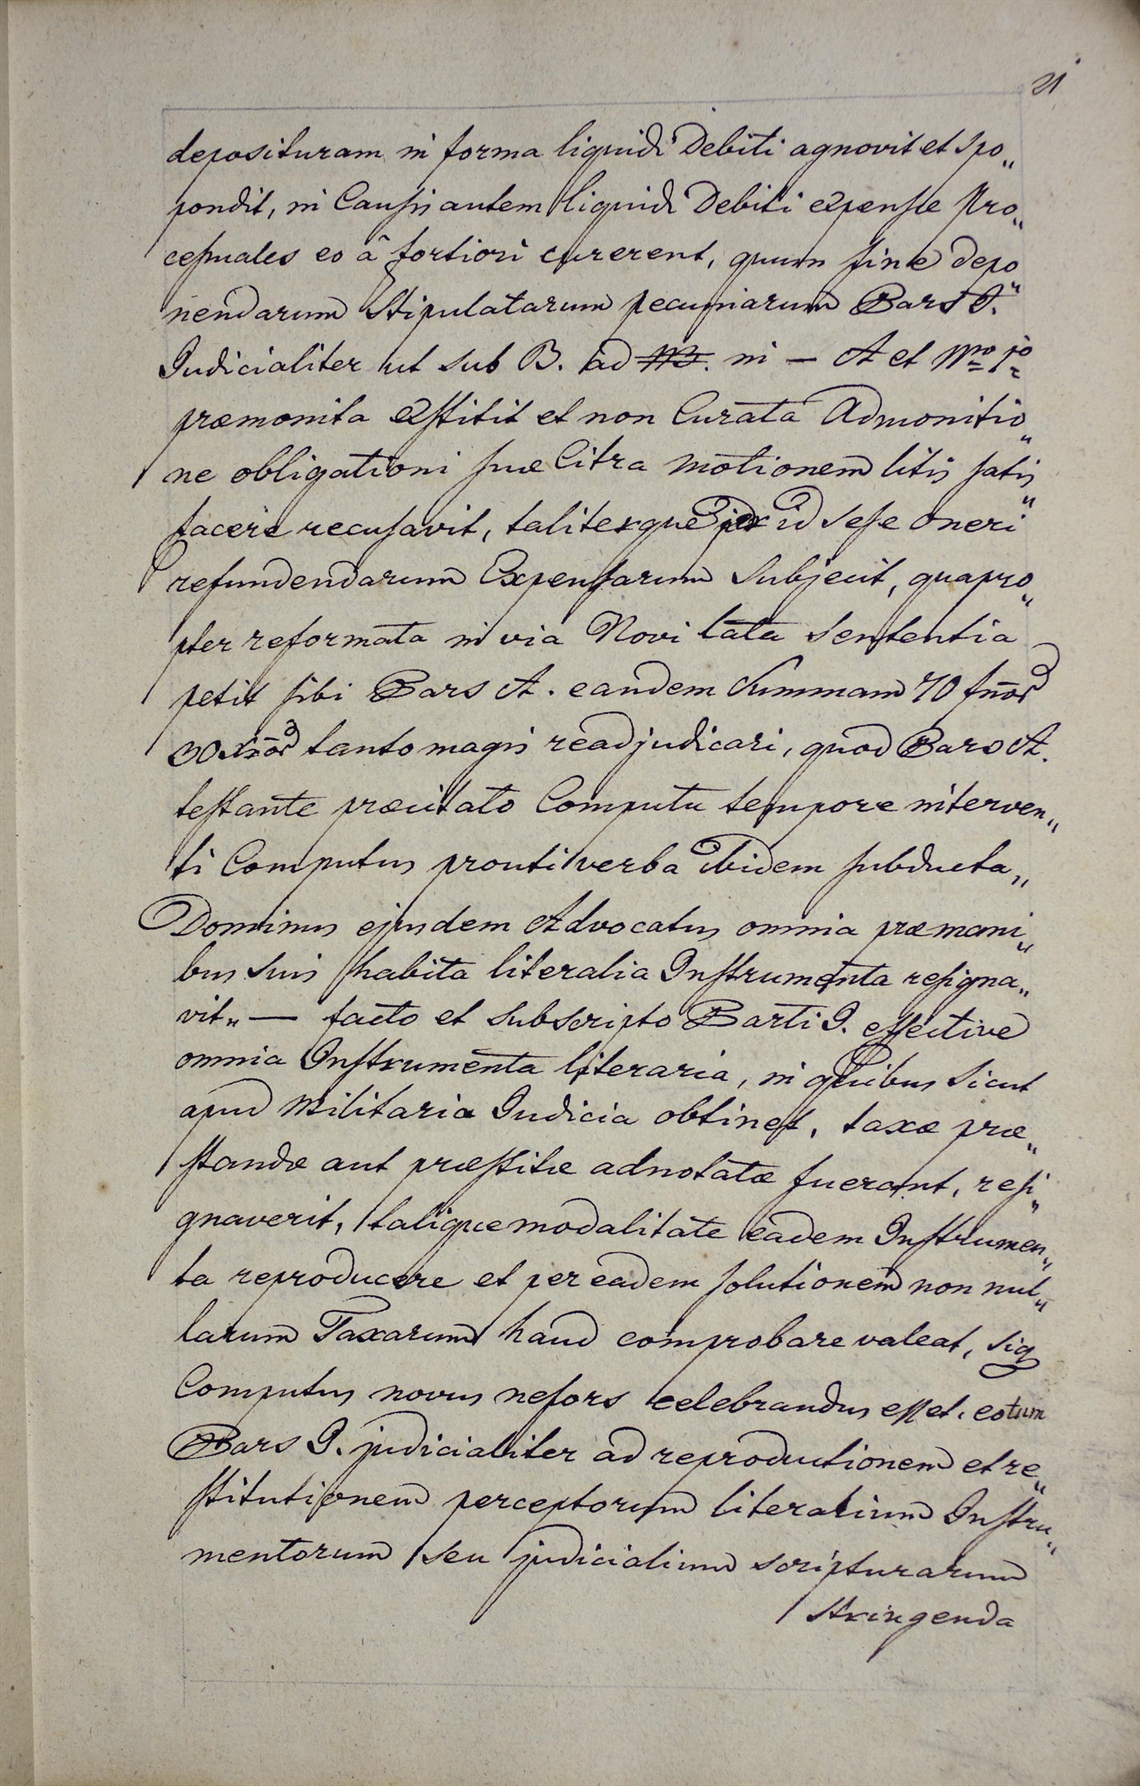 21
deposituram in forma liquidi Debiti agnovit et spo„
pondit, in Causis autem liquidi Debiti expensæ Pro„
cessuales eo â fortiori currerent, quum fine depo„
nendarum Stipulatarum pecuniarum Pars I.
Judicialiter ut sub B. ad in — A et Nro 1o
præmonita exstitit et non Curata Admonitio„
ne obligationi suæ Citra motionem litis satis„
facere recusavit, taliterque per id sese oneri
refundendarum Expensarum Subjecit, quapro„
pter reformata in via Novi lata Sententia
petit sibi Pars A. eandem Summam 70 fnōr
30 xrōr tanto magis readjudicari, quod Pars A.
testante præcitato Computu tempore interven„
ti Computus prouti verba ibidem subducta„
Dominus ejusdem Advocatus omnia præmani„
bus suis habita literalia Instrumenta resigna„
vit„ — facto et subscripto Parti I. effective
omnia Instrumenta literaria, in quibus sicut
apud Militaria Judicia obtinet, taxæ præ„
standæ aut præstitæ adnotatæ fuerant, resi„
gnaverit, talique modalitate eadem Instrumen„
ta reproducere et per eadem solutionem non nul„
larum Taxarum haud comprobare valeat, siq
Computus novus nefors celebrandus esset. eotum
Pars I. judicialiter ad reproductionem et re„
stitutionem perceptorum literalium Instru„
mentorum seu judicialium scripturarum
stringenda